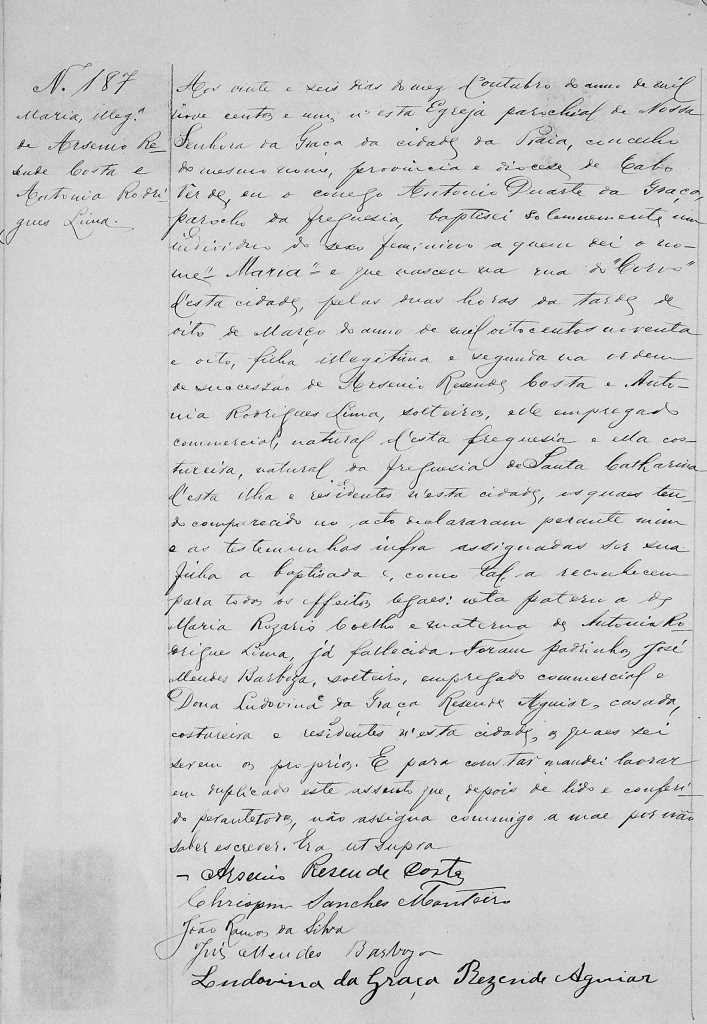 N.º 187
Maria, illeg.ª
de Arsenio Re-
sende Costa e
Antonia Rodri-
gues Lima.
Aos vinte e seis dias do mez d'outubro do anno de mil
nove centos e um, n'esta Egreja parochial de Nossa
Senhora da Graça da cidade da Praia, concelho
do mesmo nome, provincia e diocese de Cabo
Verde, eu o conego Antonio Duarte da Graça,
parocho da freguesia, baptisei solemnemente um
individuo do sexo feminino a quem dei o no-
me "Maria" e que nasceu na rua do "Corvo"
d'esta cidade, pelas duas horas da tarde de
oito de Março do anno de mil oitocentos noventa
e oito, filha illegitima e segunda na ordem
de successão de Arsenio Resende Costa e Anto-
nia Rodrigues Lima, solteiros, elle empregado
commercial, natural d'esta freguesia e ella cos-
tureira, natural da freguesia de Santa Catharina
d'esta ilha e residentes n'esta cidade, os quaes ten-
do comparecido no acto declararam perante mim
e as testemunhas infra assignadas ser sua
filha a baptisada e, como tal a reconhecem
para todos os effeitos legaes: neta paterna de
Maria Rozario Coelho e materna de Antonia Ro-
drigue Lima, já fallecida. Foram padrinhos José
Mendes Barboza, solteiro, empregado commercial e
Dona Ludovina da Graça Resende Aguiar, casada,
costureira e residentes n'esta cidade, os quaes sei
serem os proprios. E para constar mandei lavrar
em duplicado este assento que, depois de lido e conferi-
do perante todos, não assigna commigo a mãe por não
saber escrever. Era ut supra
- Arsenio Resende Costa
Sanches Monteiro
João Ramos da Silva
José Mendes Barboza
Ludovina da Graça Rezende Aguiar